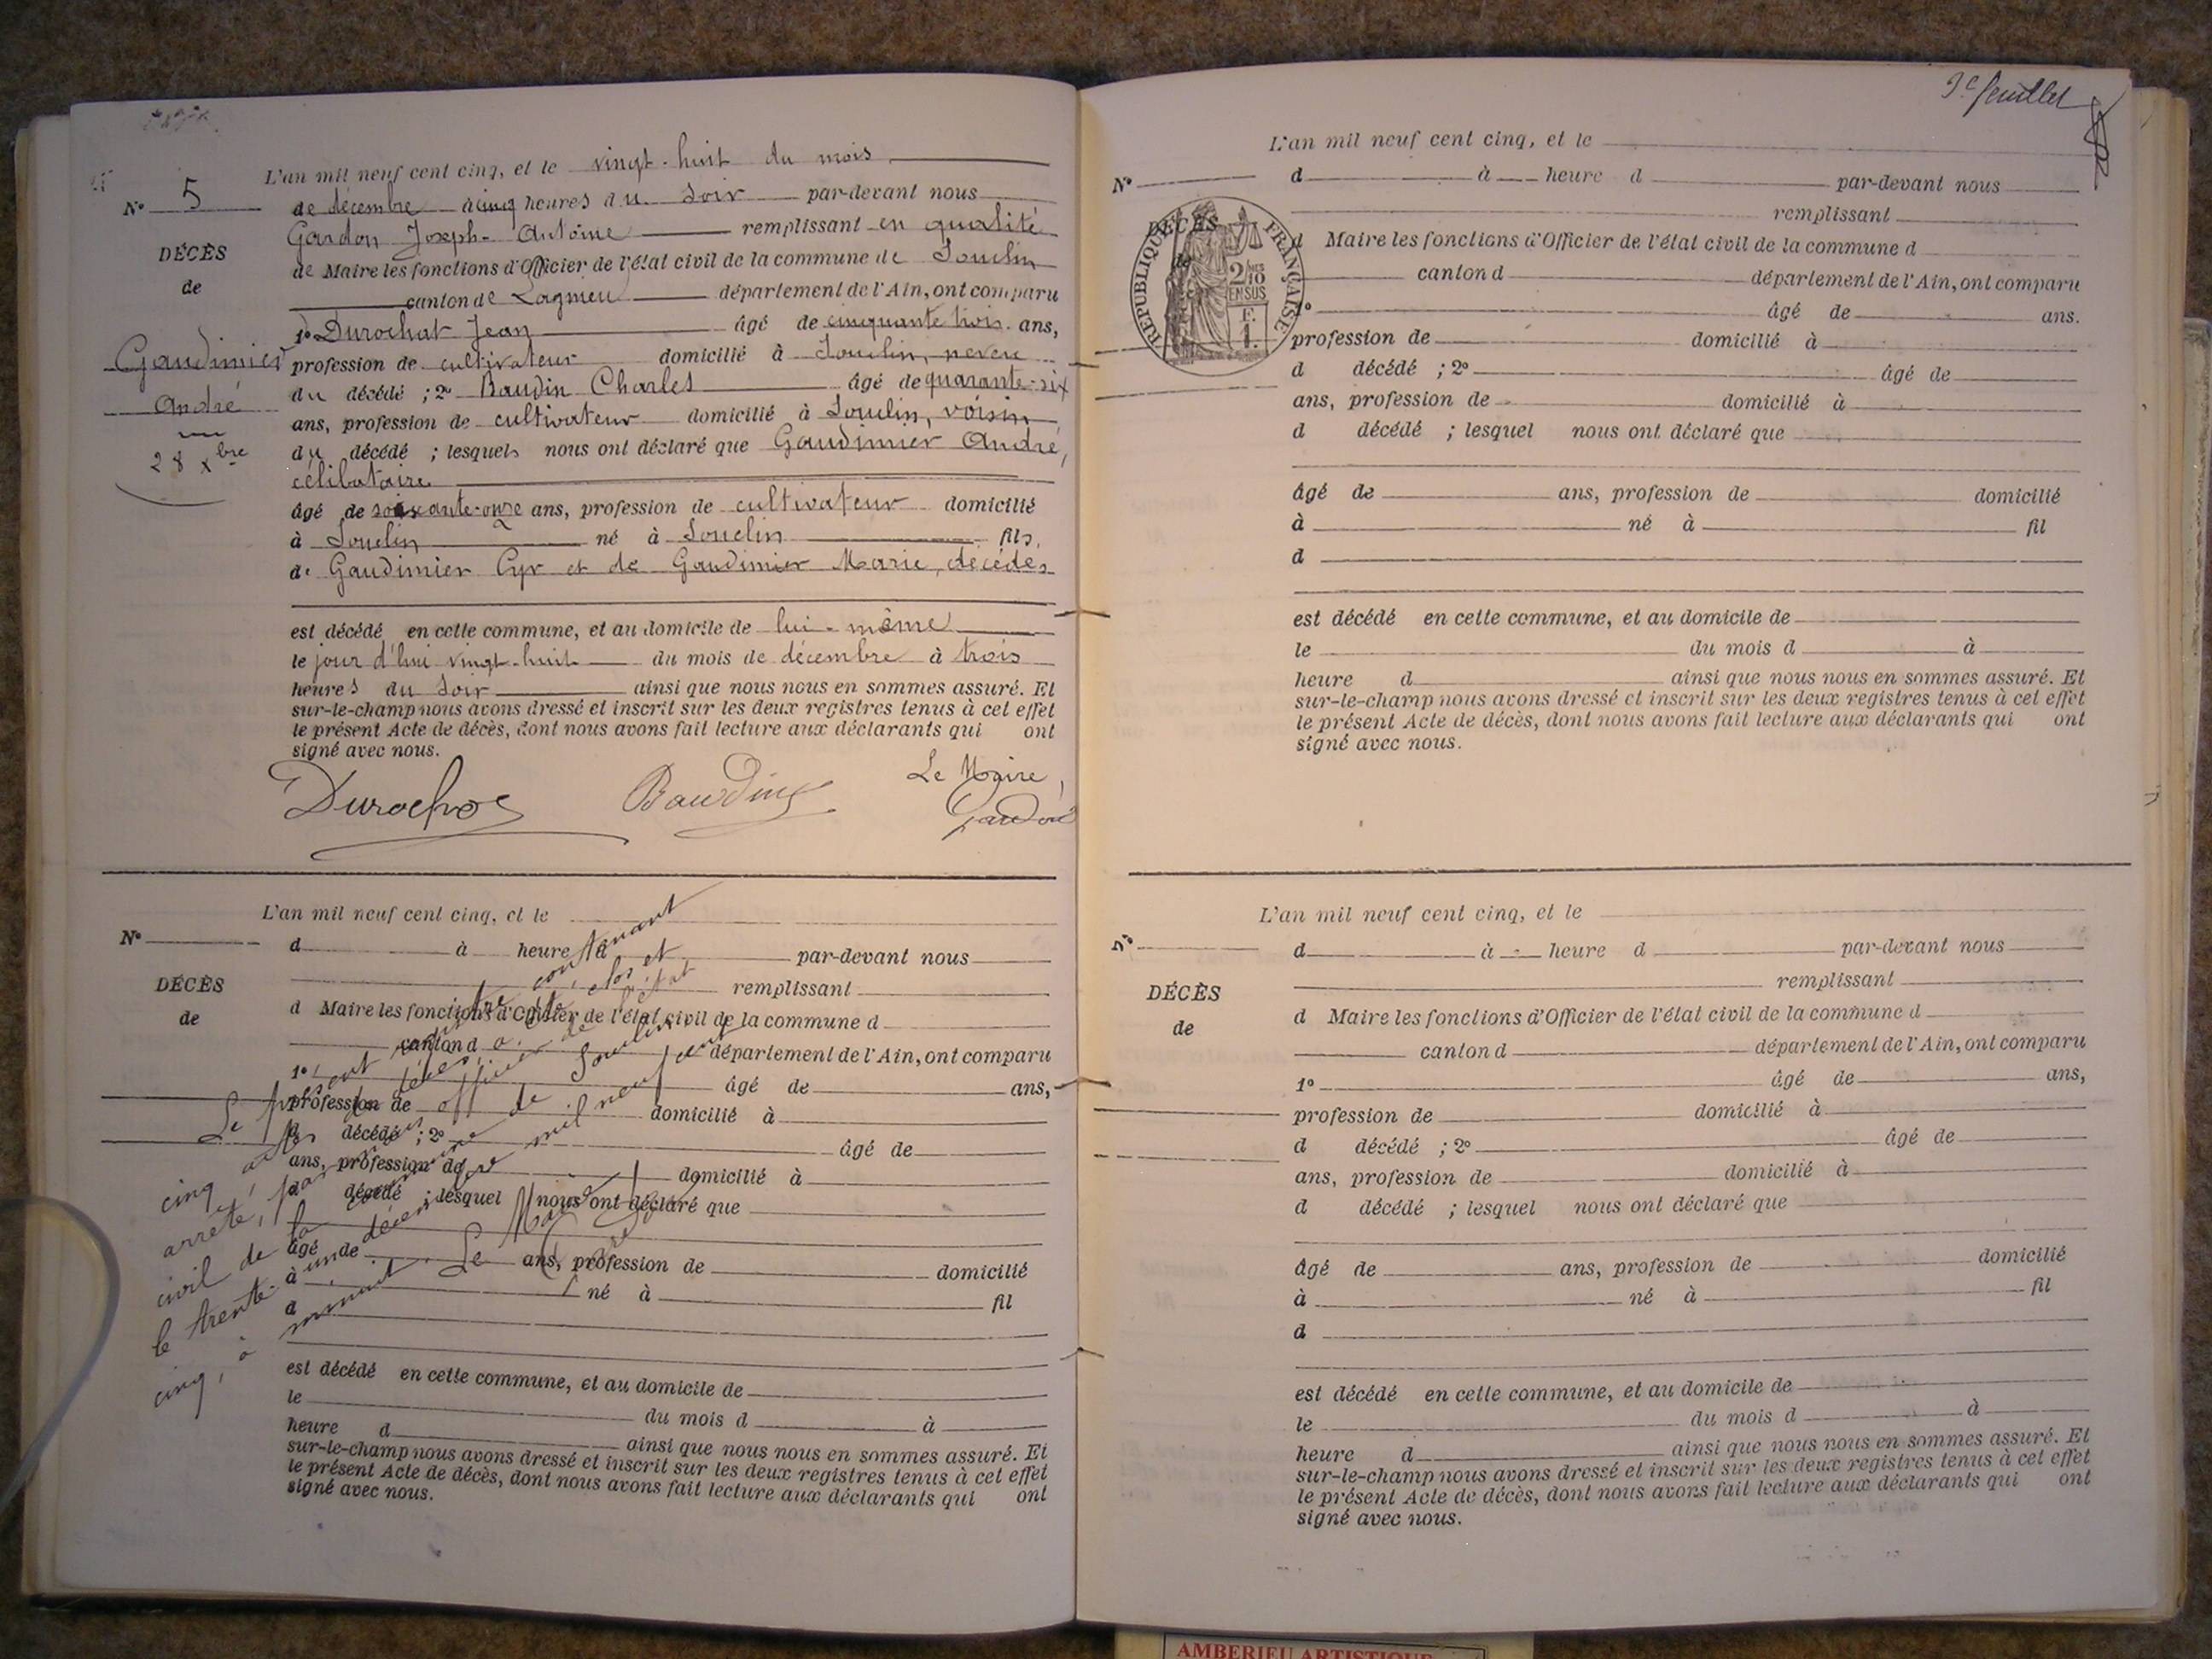 L'an mil neuf cent cinq, et le vingt-huit du mois
N° 5
de décembre à cinq heures du soir par-devant nous
Gardon Joseph-Antoine remplissant en qualité
DÉCÈS
de Maire les fonctions d'Officier de l'état civil de la commune de Souclin
de
canton de Lagnieu département de l'Ain, ont comparu
1° Durochat Jean âgé de cinquante trois ans,
Gaudimier
profession de cultivateur domicilié à Souclin, neveu
André
du décédé ; 2° Baudin Charles âgé de quarante-six
ans, profession de cultivateur domicilié à Souclin, voisin
28 xbre
du décédé ; lesquels nous ont déclaré que Gaudimier André,
célibataire
âgé de soixante-onze ans, profession de cultivateur domicilié
à Souclin né à Souclin fils
de Gaudimier Cyr et de Gaudimier Marie, décédés
est décédé en cette commune, et au domicile de lui-même
le jour d'hui vingt-huit du mois de décembre à trois
heures du soir ainsi que nous nous en sommes assuré. Et
sur-le-champ nous avons dressé et inscrit sur les deux registres tenus à cet effet
le présent Acte de décès, dont nous avons fait lecture aux déclarants qui ont
signé avec nous.
Le Maire,
Durochat Baudin Gardon
L'an mil neuf cent cinq, et le
N°
d à heure d par-devant nous
remplissant
DÉCÈS
d Maire les fonctions d'Officier de l'état civil de la commune d
de
canton d département de l'Ain, ont comparu
1° âgé de ans,
profession de domicilié à
d décédé ; 2° âgé de
ans, profession de domicilié à
d décédé ; lesquel nous ont déclaré que
âgé de ans, profession de domicilié
à né à fil
d
est décédé en cette commune, et au domicile de
le du mois d à
heure d ainsi que nous nous en sommes assuré. Et
sur-le-champ nous avons dressé et inscrit sur les deux registres tenus à cet effet
le présent Acte de décès, dont nous avons fait lecture aux déclarants qui ont
signé avec nous.
Le présent registre contenant
cinq actes de décès, a été clos et
arrêté, par nous officier de l'état
civil de la commune de Souclin
le trente-un décembre mil neuf cent
cinq, à minuit. Le Maire
3e feuillet
L'an mil neuf cent cinq, et le
N°
d à heure d par-devant nous
remplissant
DÉCÈS
d Maire les fonctions d'Officier de l'état civil de la commune d
de
RÉPUBLIQUE FRANÇAISE
2/10
EN SUS
F.
1.
canton d département de l'Ain, ont comparu
1° âgé de ans.
profession de domicilié à
d décédé ; 2° âgé de
ans, profession de domicilié à
d décédé ; lesquel nous ont déclaré que
âgé de ans, profession de domicilié
à né à fil
d
est décédé en cette commune, et au domicile de
le du mois d à
heure d ainsi que nous nous en sommes assuré. Et
sur-le-champ nous avons dressé et inscrit sur les deux registres tenus à cet effet
le présent Acte de décès, dont nous avons fait lecture aux déclarants qui ont
signé avec nous.
L'an mil neuf cent cinq, et le
N°
d à heure d par-devant nous
remplissant
DÉCÈS
d Maire les fonctions d'Officier de l'état civil de la commune d
de
canton d département de l'Ain, ont comparu
1° âgé de ans,
profession de domicilié à
d décédé ; 2° âgé de
ans, profession de domicilié à
d décédé ; lesquel nous ont déclaré que
âgé de ans, profession de domicilié
à né à fil
d
est décédé en cette commune, et au domicile de
le du mois d à
heure d ainsi que nous nous en sommes assuré. Et
sur-le-champ nous avons dressé et inscrit sur les deux registres tenus à cet effet
le présent Acte de décès, dont nous avons fait lecture aux déclarants qui ont
signé avec nous.
AMBERIEU ARTISTIQUE